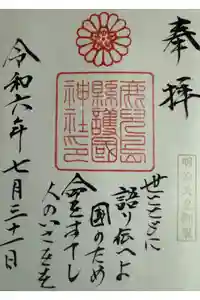 奉拝
鹿兒島
縣護國
神社印
明治天皇御製
世とともに
語り伝へよ
国のため
命をすてし
人のいさをを
令和六年七月三十一日